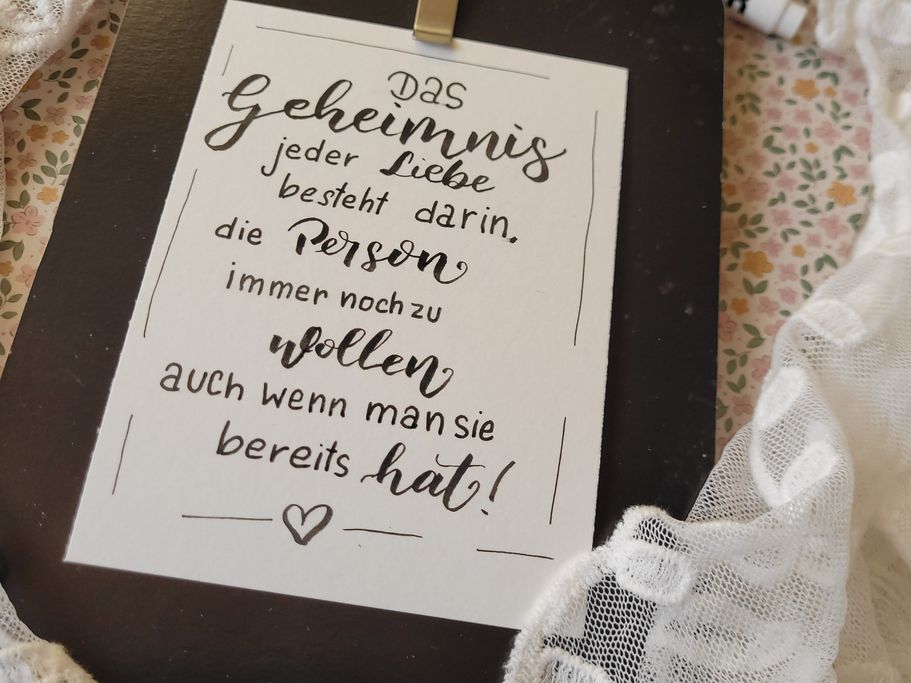 Das
Geheimnis
jeder Liebe
besteht darin.
die Person
immer noch zu
wollen
auch wenn man sie
bereits hat!